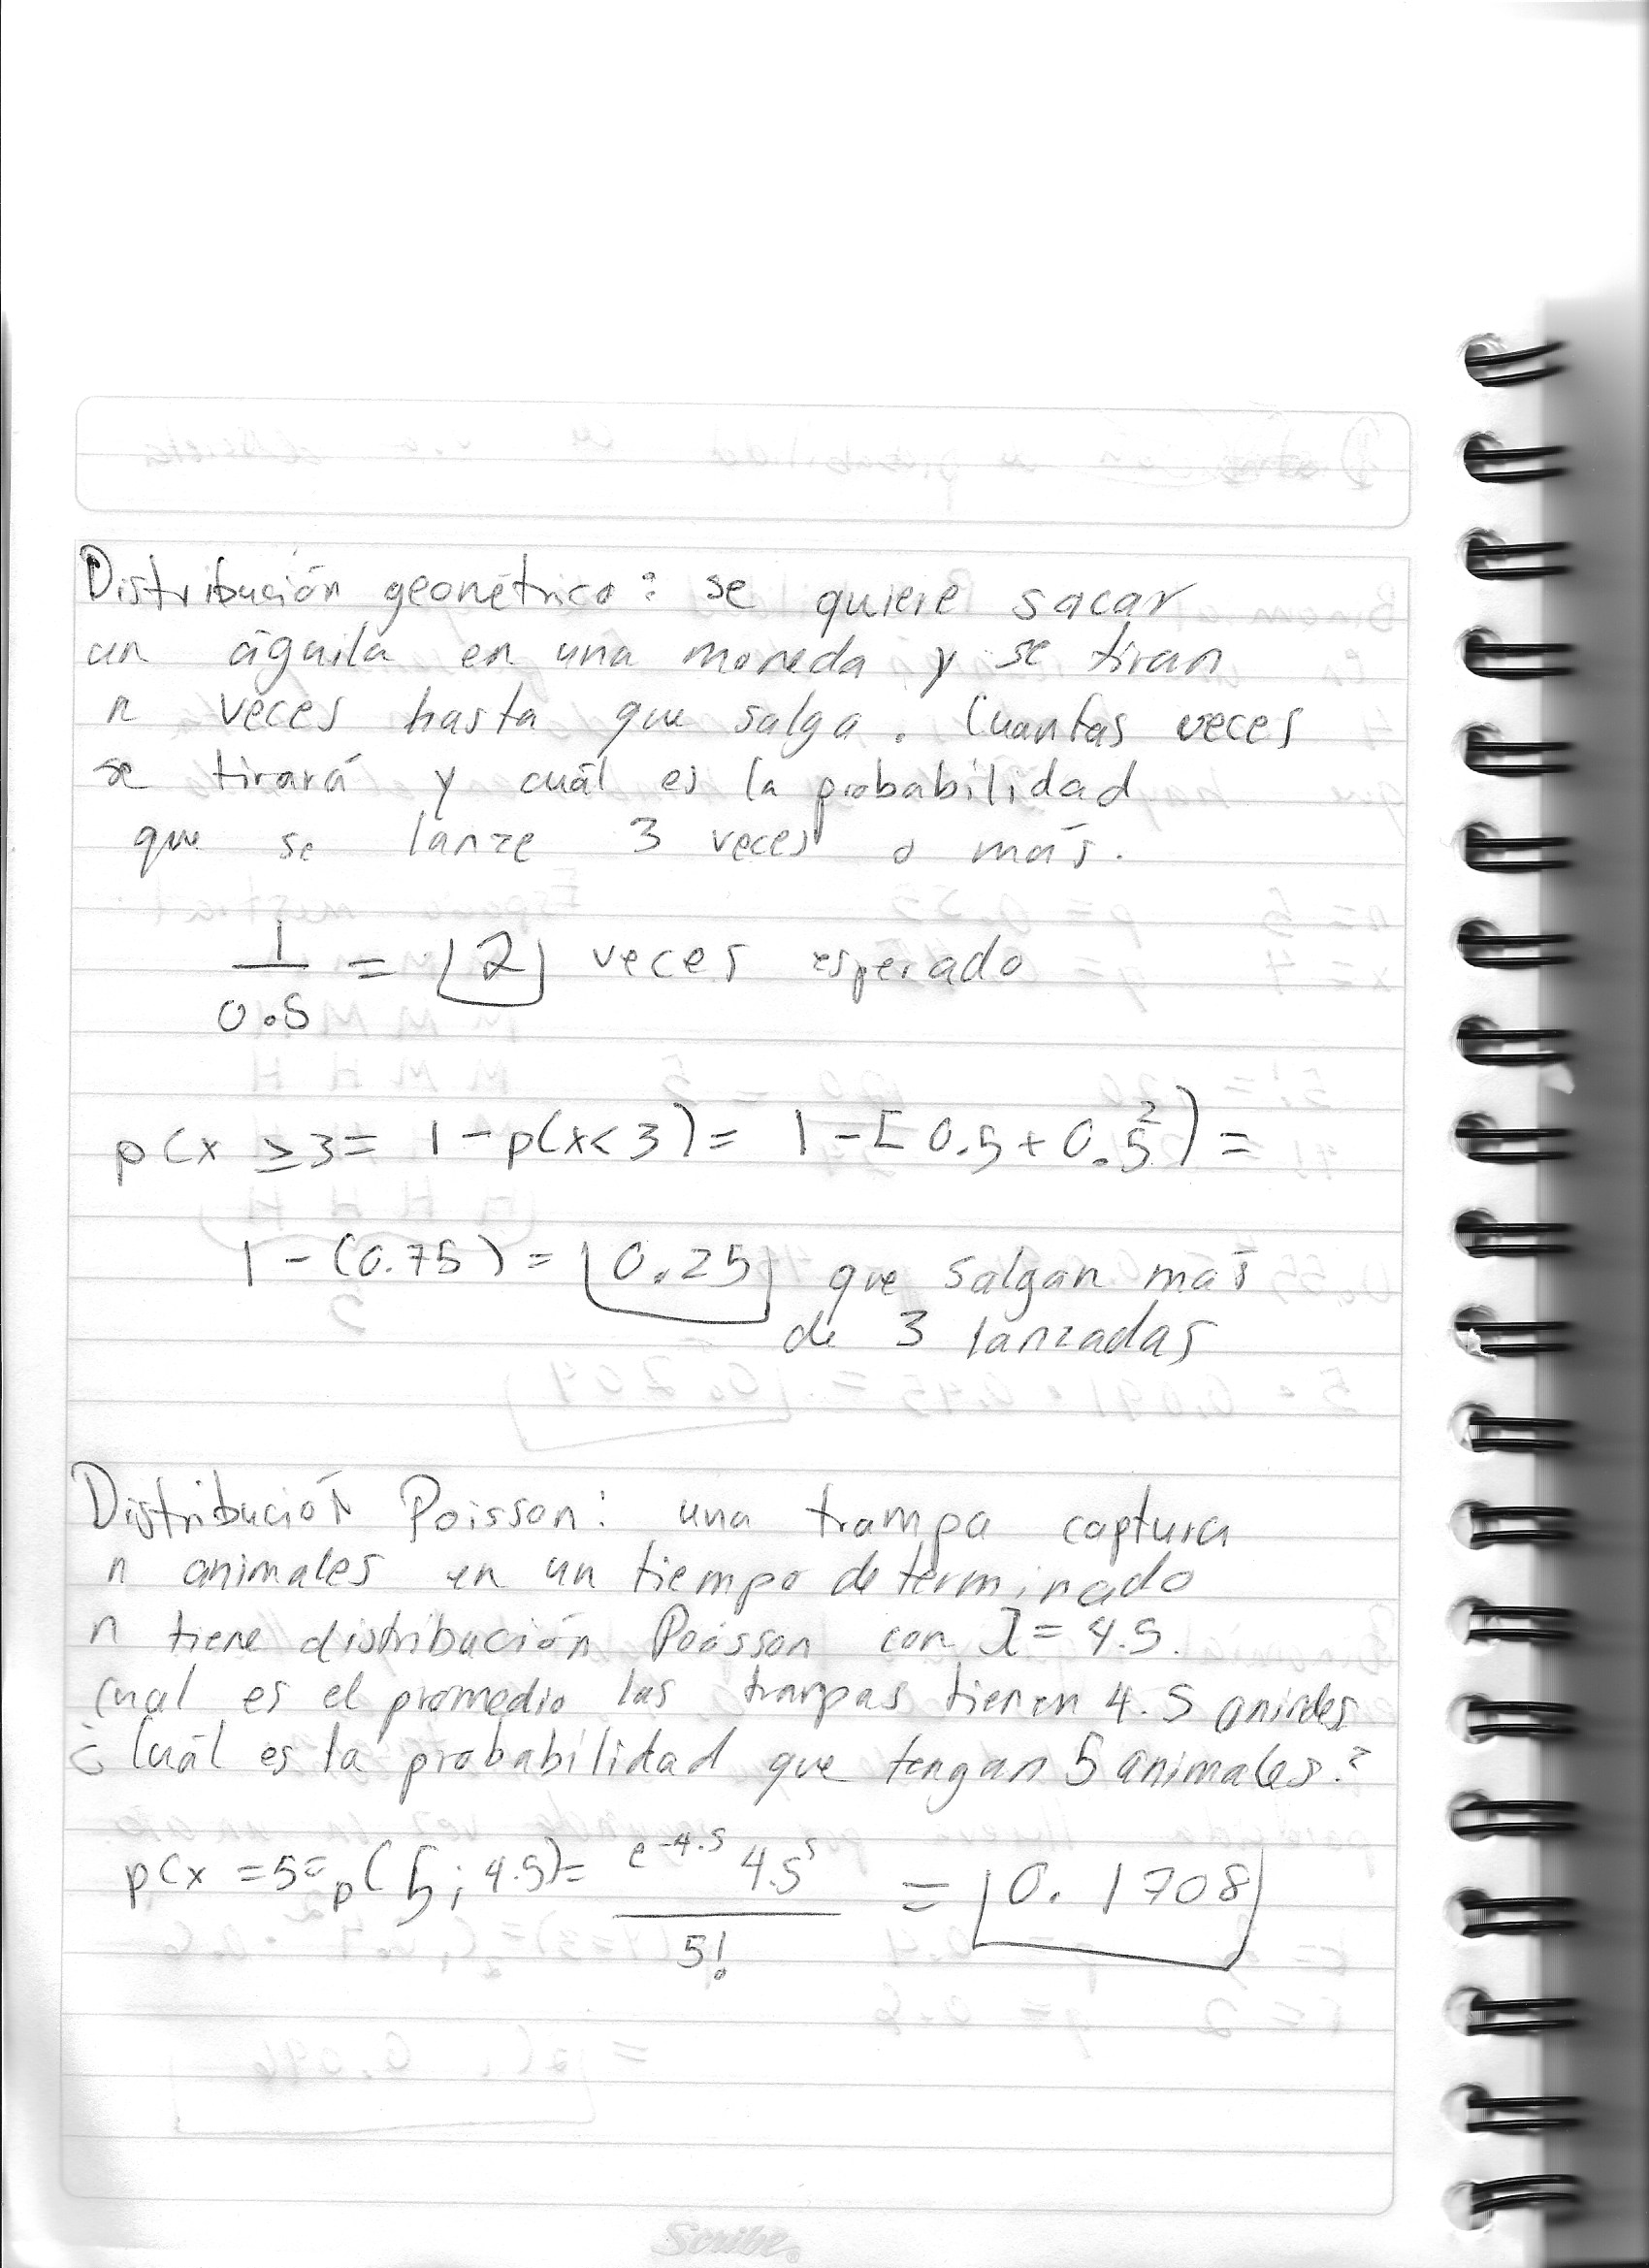 Distribución geométrica: se quiere sacar
un águila en una moneda y se tiran
n veces hasta que salga. Cuantas veces
se tirará y cuál es la probabilidad
que se lanze 3 veces o más.
1/0.5 = 2 veces esperado
p(x ≥3= 1-p(x<3)= 1-[0.5+0.5²)=
1-(0.75)= 0.25 que salgan más
de 3 lanzadas
Distribución Poisson: una trampa captura
n animales en un tiempo determinado
n tiene distribución Poisson con λ= 4.5.
cual es el promedio las trampas tienen 4.5
¿Cuál es la probabilidad que tengan 5 animales?
p(x =5= p(5; 4.5)= e^-4.5 4.5^5 / 5! = 0.1708
Scribe